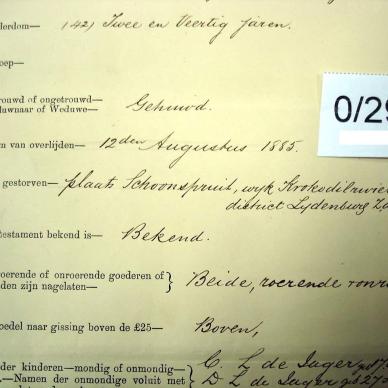 lderdom— (42) Twee en Veertig Jaren.
oep—
rouwd of ongetrouwd—
duwnaar of Weduwe— Gehuwd.
0/29
m van overlijden— 12den Augustus 1885.
gestorven— plaats Schoonspruit, wyk Krokodilrivier
district Lydenburg Z
testament bekend is— Bekend.
oerende of onroerende goederen of
den zijn nagelaten—} Beide, roerende
oedel naar gissing boven de £25— Boven,
der kinderen—mondig of onmondig— C. L de Jager
.—Namen der onmondige voluit met D L de Jager